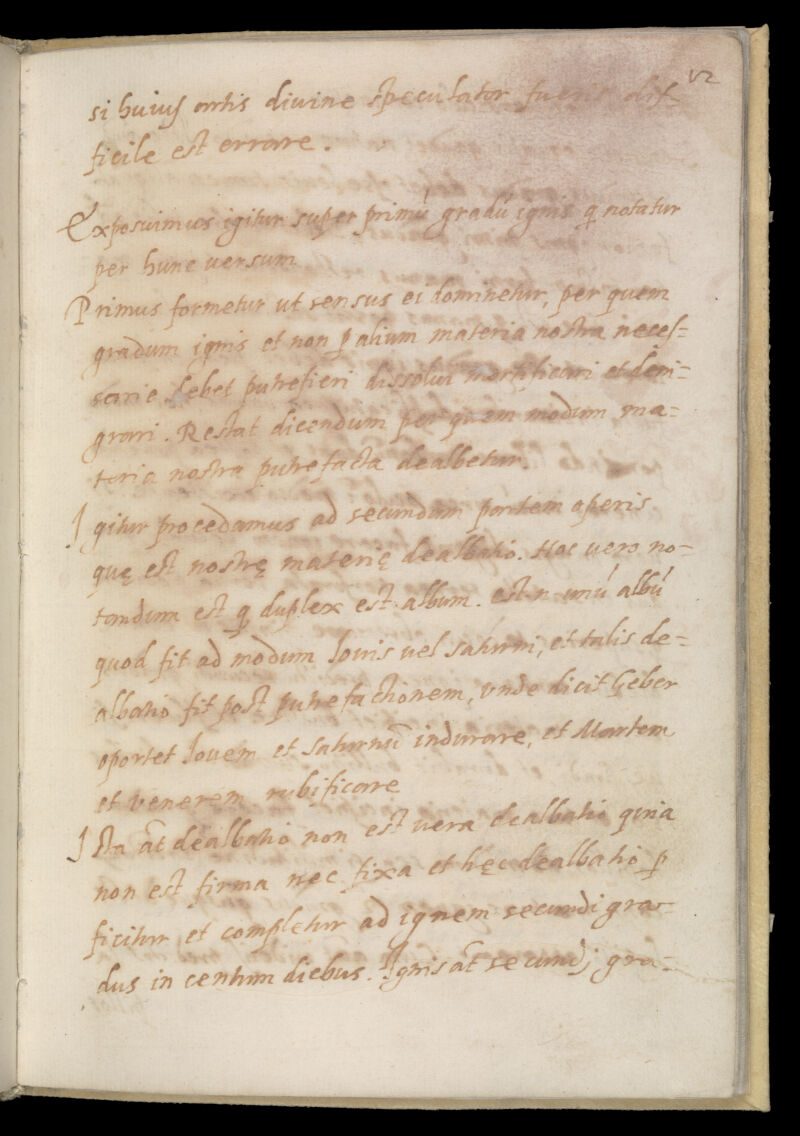 12
si huius artis divine speculator fueris dif-
ficile est errare.
Exposuimus igitur super primū gradū ignis q notatur
per hunc versum
Primus formetur ut sensus ei dominetur, per quem
gradum ignis et non p alium materia nostra neces=
sarie debet putrefieri dissolui mortificari et deni=
grari. Restat dicendum per quem modum ma=
teria nostra putrefacta dealbetur.
Igitur procedamus ad secundum partem operis
quę est nostrę materię dealbatio. Hoc vero no=
tandum est q duplex est album. est n unū albū
quod fit ad modum Iovis vel saturni, et talis de=
albatio fit post putrefactionem, vnde dicit Geber
oportet Iovem et saturnū indurare, et Martem
et venerem rubificare
Ista āt dealbatio non est vera dealbatio quia
non est firma nec fixa et hęc dealbatio p
ficitur et completur ad ignem secundi gra-
dus in centum diebus. Ignis āt secundj gra-